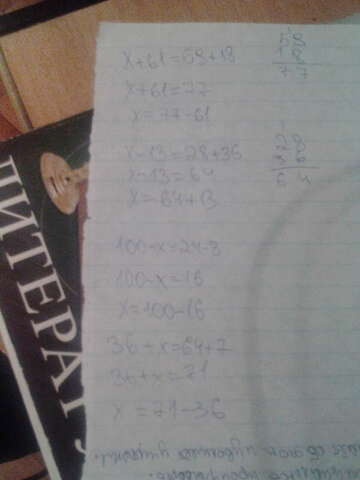 x+61=59+18
x+61=77
x=77-61
59
18
77
x-13=28+36
x-13=64
x=64+13
28
36
64
100-x=24-8
100-x=16
x=100-16
36+x=64+7
36+x=71
x=71-36
ЛИТЕРАТУ